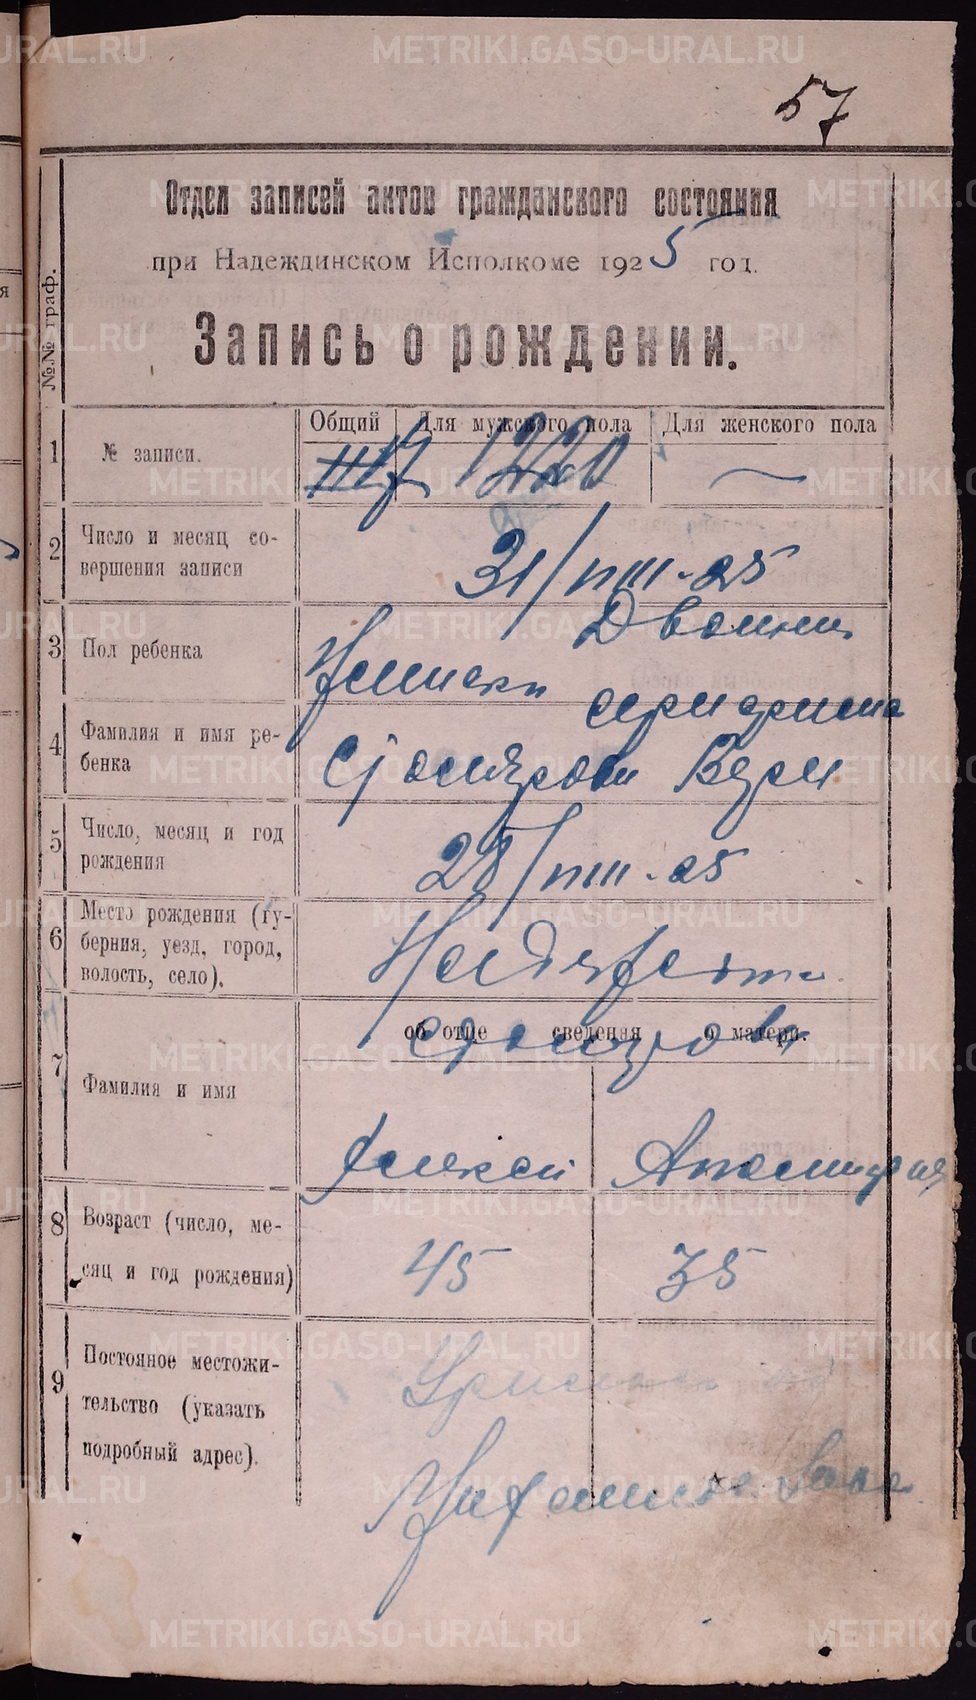 57
Отдел записей актов гражданского состояния
при Надеждинском Исполкоме 1925 год.
Запись о рождении.
№№ граф.
Общий Для мужского пола Для женского пола
1 № записи. 1220 —
2 Число и месяц со-
вершения записи
31/VIII-25
3 Пол ребенка
Двойни
Женский
4 Фамилия и имя ре-
бенка
Столярова Вера
5 Число, месяц и год
рождения
28/VIII-25
6 Место рождения (гу-
берния, уезд, город,
волость, село).
Надеждинск
об отце сведения о матери.
Столярова
7 Фамилия и имя
Алексей Аполинария
8 Возраст (число, ме-
сяц и год рождения)
45 35
9 Постояное местожи-
тельство (указать
подробный адрес).
METRIKI.GASO-URAL.RU